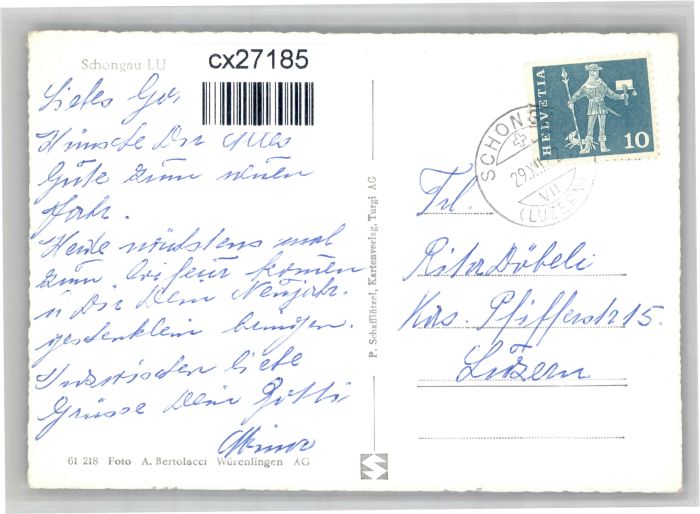 Schongau LU
cx27185
Liebes
Wünsche Dir Alles
Gute zum neuen
Jahr.
Werde nächstens mal
zum Coifeur kommen
u Dir Dein Neujahr-
geschenklein bringen.
Inzwischen liebe
Grüsse Dein Gotti
61 218 Foto A. Bertolacci Würenlingen AG
P. Schafflützel, Kartenverlag, Turgi AG
HELVETIA
10
SCHONG
29.XII
VII
(LUZERN)
Frl.
Rita Döbeli
Kas. Pfifferstr 15.
Luzern